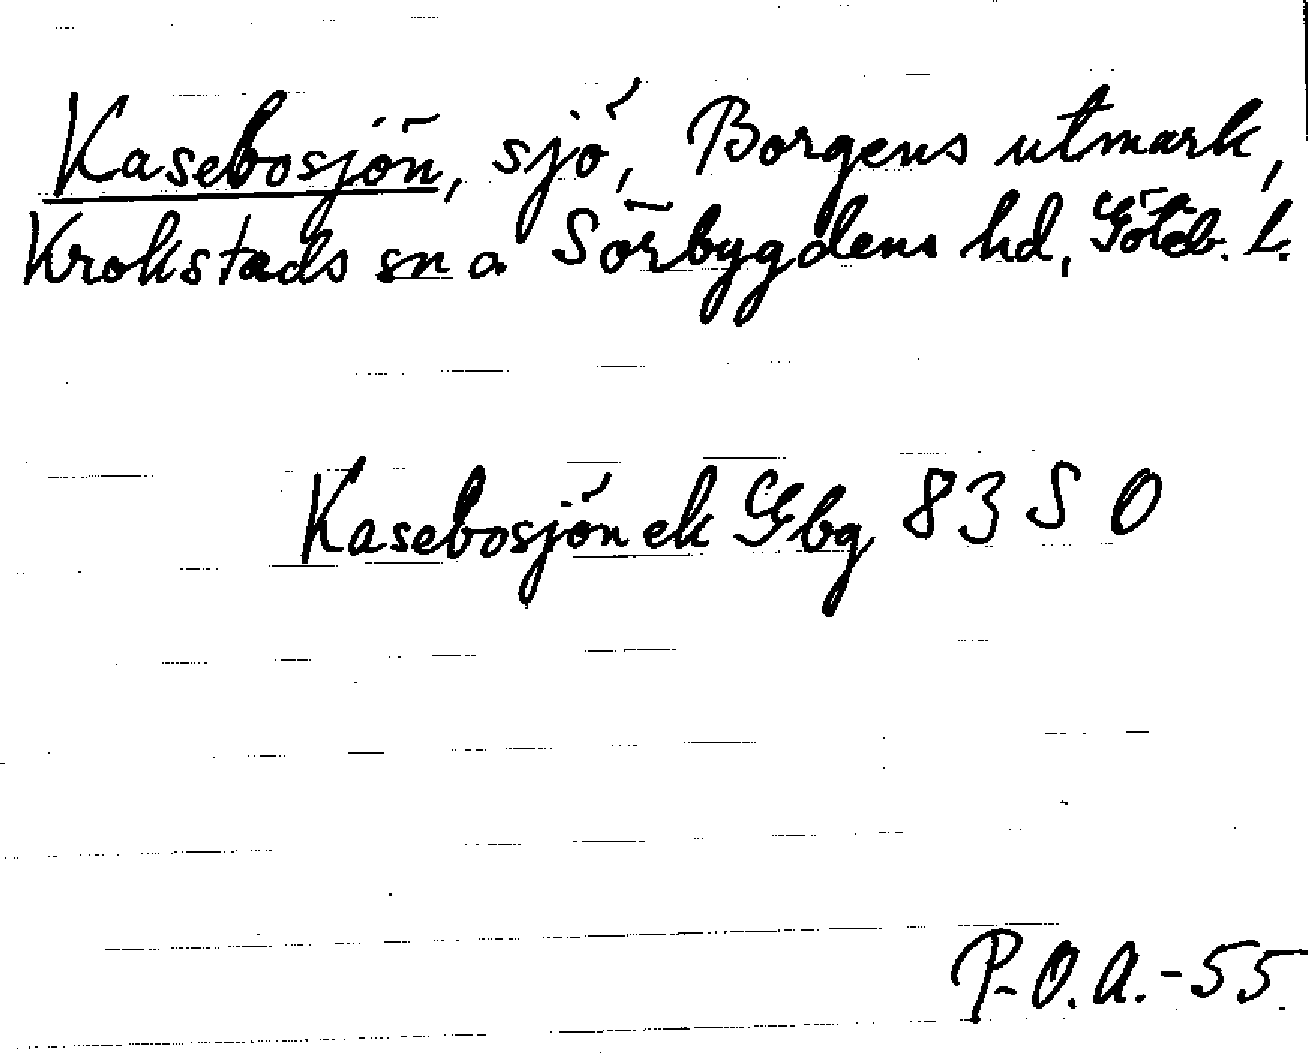 Kasebosjön, sjö, Borgens utmark,
Krokstads sn a Sörbygdens hd, Göteb. L.
Kasebosjön ek Gbg 83 S O
P-O.A.-55.